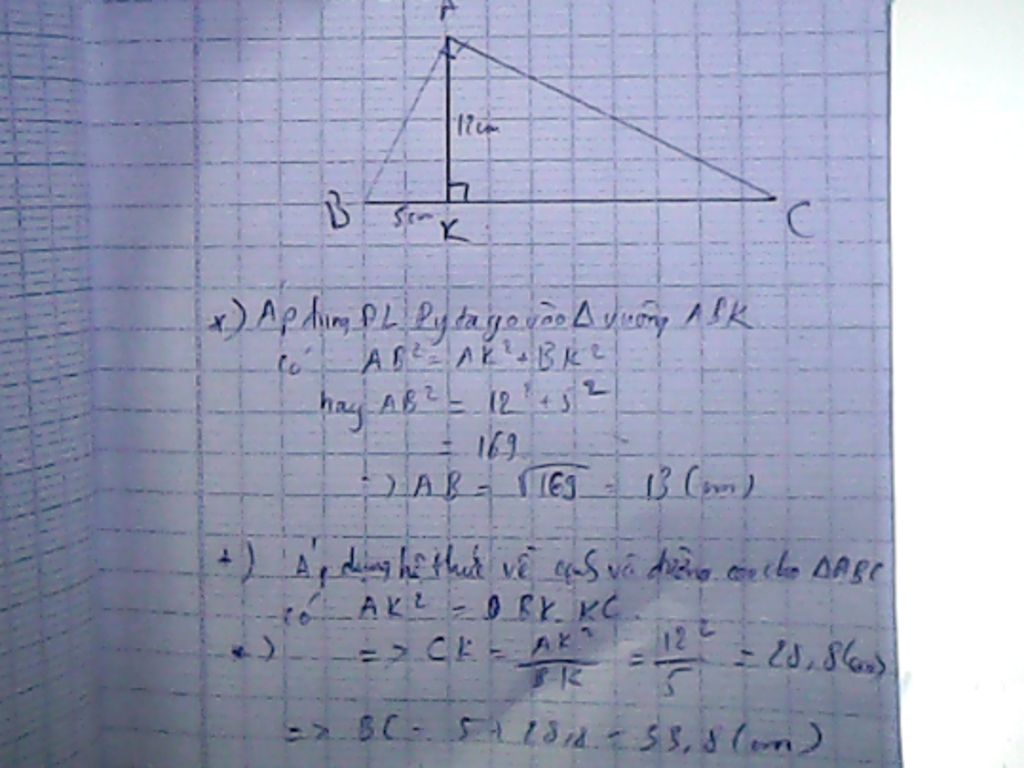 A
12cm
B 5cm K C
*) Áp dụng ĐL Pytago vào Δ vuông ABK
có AB² = AK² + BK²
hay AB² = 12² + 5²
= 169
=> AB = √169 = 13 (cm)
+) Áp dụng hệ thức về cạnh và đường cao cho ΔABC
có AK² = BK.KC
=> CK = AK²/BK = 12²/5 = 28,8 (cm)
=> BC = 5 + 28,8 = 33,8 (cm)